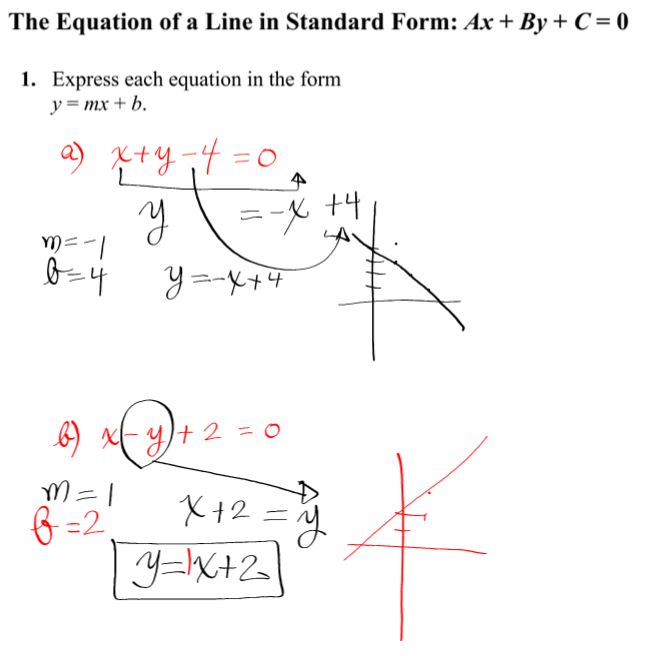 The Equation of a Line in Standard Form: Ax + By + C = 0
1. Express each equation in the form
y = mx + b.
a) x+y-4=0
y =-x +4
m=-1
b=4 y=-x+4
b) x-y+2=0
m=1
b=2 x+2=y
y=1x+2